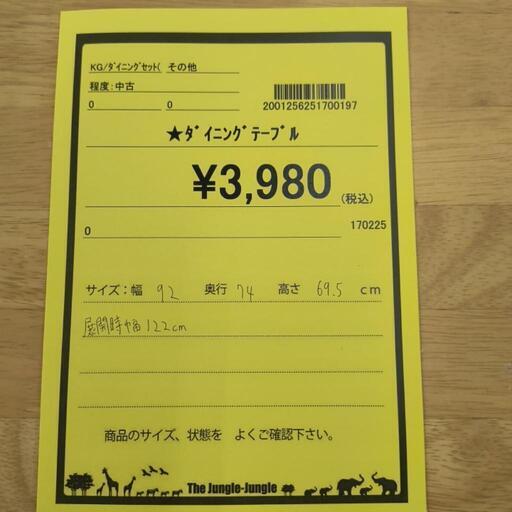 KG/ﾀﾞｲﾆﾝｸﾞｾｯﾄ( その他
程度:中古
0 0
2001256251700197
★ﾀﾞｲﾆﾝｸﾞﾃｰﾌﾞﾙ
¥3,980(税込)
0 170225
サイズ:幅 92 奥行 74 高さ 69.5 cm
展開時幅122cm
商品のサイズ、状態を よくご確認下さい。
The Jungle-Jungle